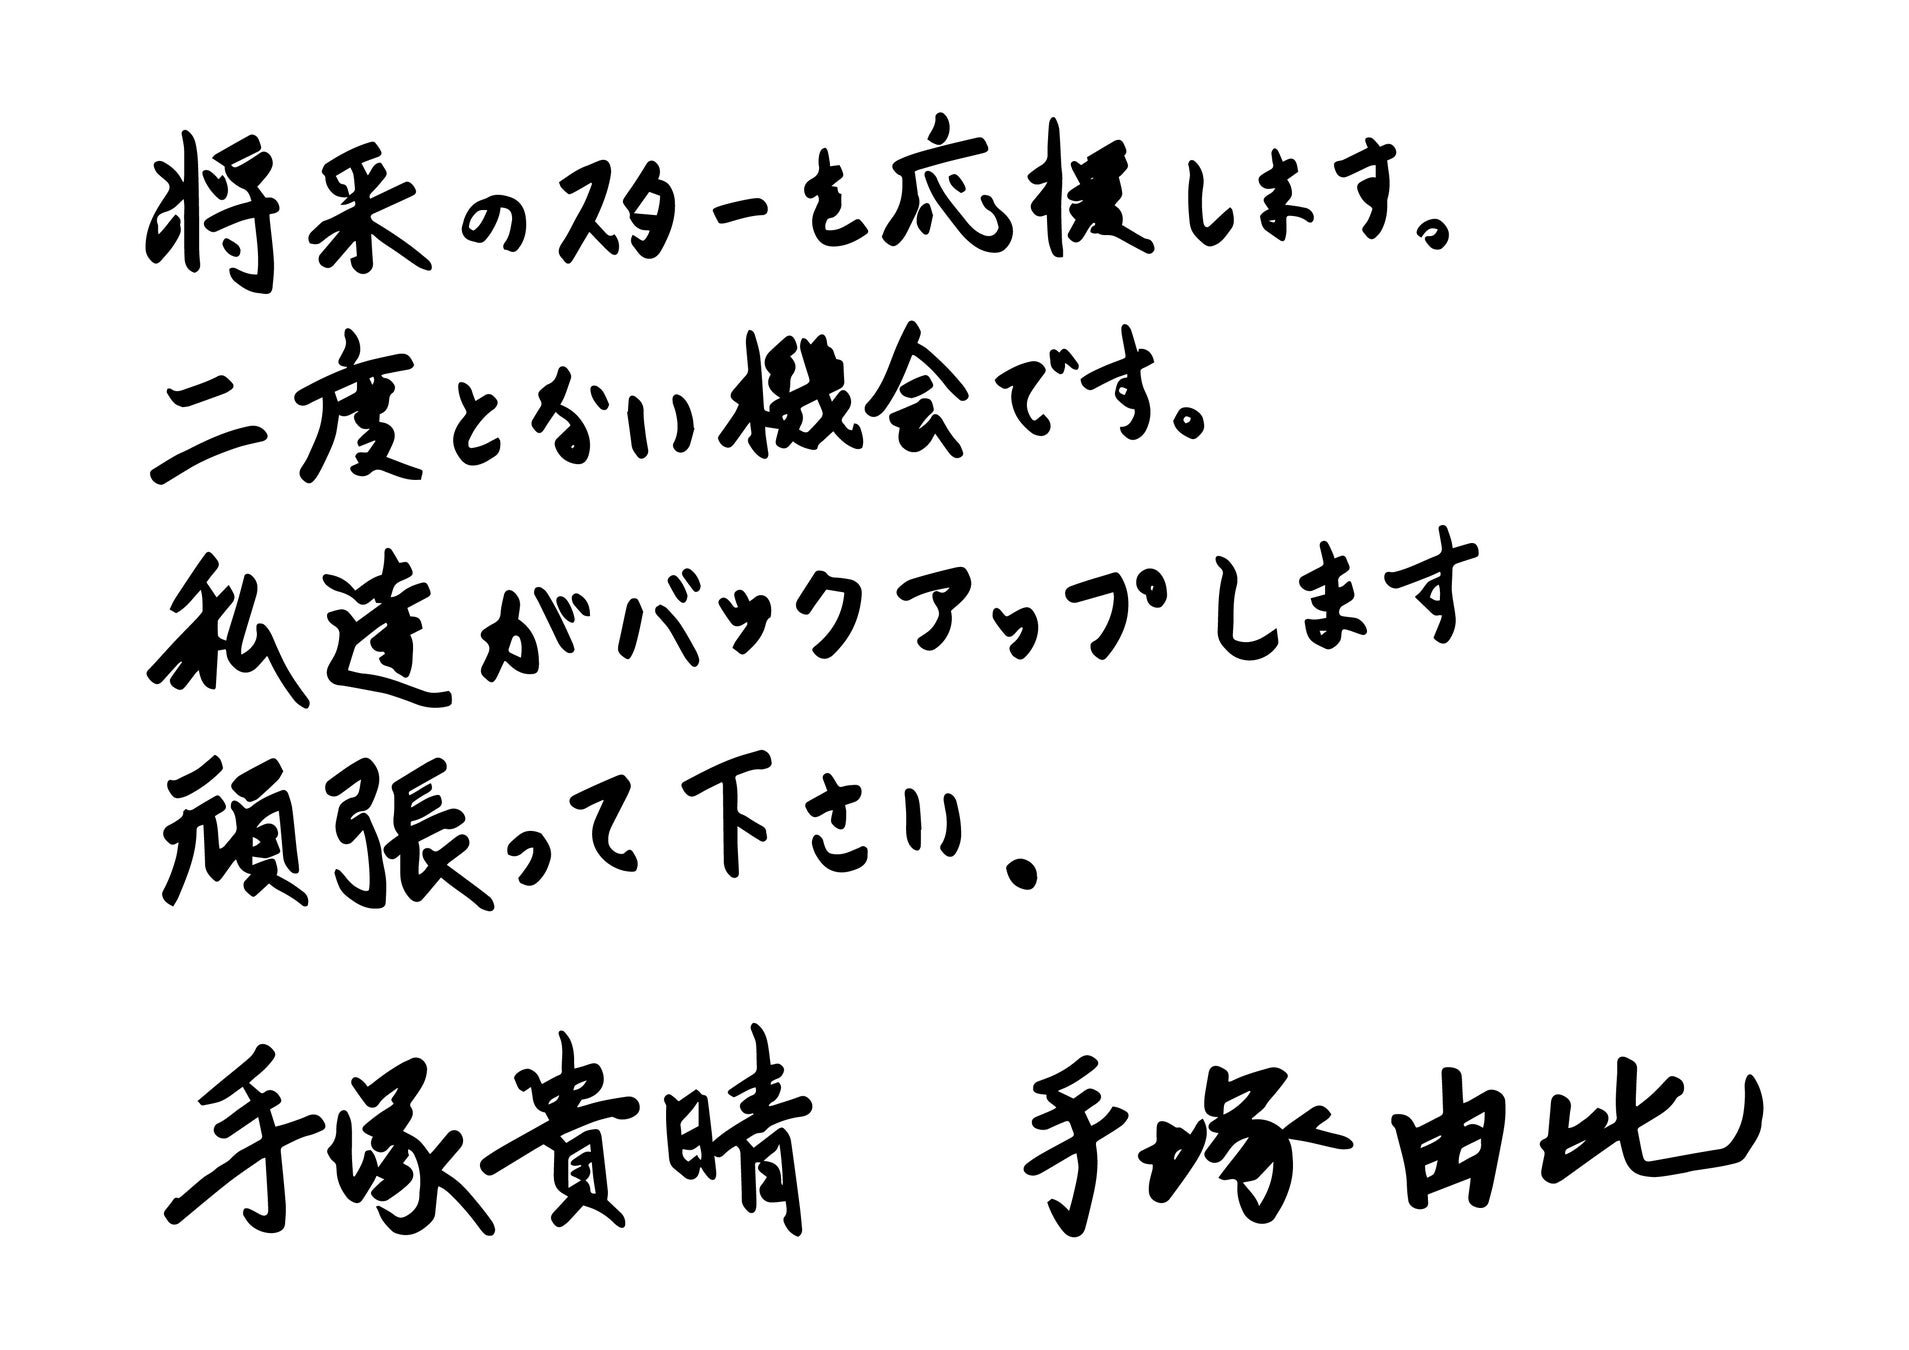 将来のスターを応援します。
二度とない機会です。
私達がバックアップします
頑張って下さい.
手塚貴晴　手塚由比